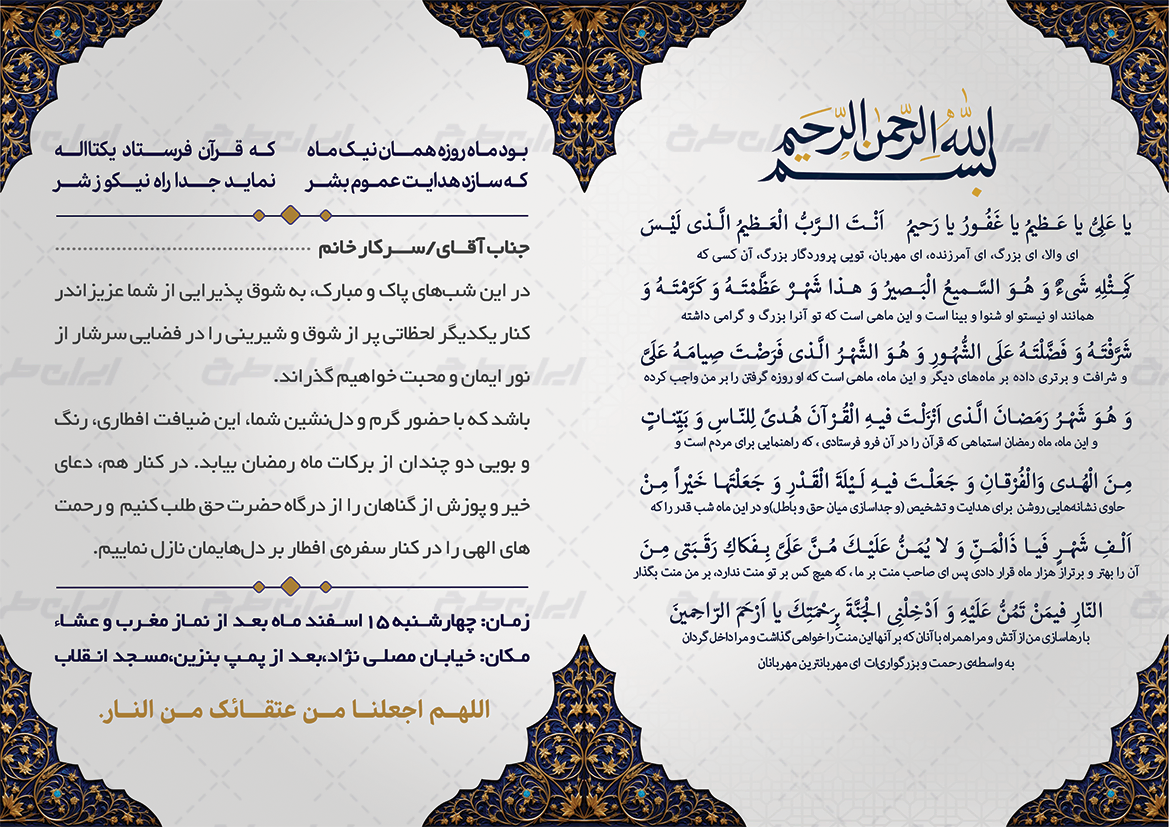 بسم الله الرحمن الرحیم
یا عَلِیُّ یا عَـظیمُ یا غَفُـورُ یا رَحیمُ اَنْـتَ الـرَّبُّ الْعَـظیمُ الَّـذی لَیْـسَ
ای والا، ای بزرگ، ای آمرزنده، ای مهربان، تویی پروردگار بزرگ، آن کسی که
کَمِـثْلِهِ شَیءٌ وَ هُـوَ السَّـمیعُ الْبَـصیرُ وَ هـذا شَـهْرٌ عَظَّمْتَـهُ وَ کَرَّمْتَـهُ وَ
همانند او نیستو او شنوا و بینا است و این ماهی است که تو آنرا بزرگ و گرامی داشته
شَرَّفْتَـهُ وَ فَضَّلْتَـهُ عَلَی الشُّهُـورِ وَ هُـوَ الشَّهْرُ الَّـذی فَرَضْـتَ صِیامَـهُ عَلَیَّ
و شرافت و برتری داده بر ماه‌های دیگر و این ماه، ماهی است که او روزه گرفتن را بر من واجب کرده
وَ هُـوَ شَـهْرُ رَمَضـانَ الَّـذی اَنْزَلْـتَ فیـهِ الْقُـرْآنَ هُـدیً لِلنّـاسِ وَ بَیِّنـاتٍ
و این ماه، ماه رمضان استماهی که قرآن را در آن فرو فرستادی ، که راهنمایی برای مردم است و
مِـنَ الْهُـدی وَالْفُرْقـانِ وَ جَعَلْـتَ فیـهِ لَـیْلَةَ الْقَـدْرِ وَ جَعَلْتَهـا خَیْراً مِـنْ
حاوی نشانه‌هایی روشن برای هدایت و تشخیص (و جداسازی میان حق و باطل)و در این ماه شب قدر را که
اَلْـفِ شَهْـرٍ فَیـا ذَالْمَـنِّ وَ لا یُمَـنُّ عَلَیْـكَ مُـنَّ عَلَیَّ بِـفَکاكِ رَقَـبَتی مِـنَ
آن را بهتر و برتراز هزار ماه قرار دادی پس ای صاحب منت بر ما ، که هیچ کس بر تو منت ندارد، بر من منت بگذار
النّـارِ فیمَـنْ تَمُـنُّ عَلَیْهِ وَ اَدْخِلْـنِی الْجَنَّـةَ بِرَحْمَتِـكَ یا اَرْحَمَ الرّاحِمینَ
با رهاسازی من از آتش و مرا همراه با آنان که بر آنها این منت را خواهی گذاشت و مرا داخل گردان
به واسطه‌ی رحمت و بزرگواری‌ات ای مهربانترین مهربانان
بـود مـاه روزه همـان نیـک مـاه که قـرآن فرسـتاد یکتـاالـه
کـه سـازد هدایـت عمـوم بشـر نمایـد جـدا راه نیـکو ز شـر
جناب آقـای/سـرکار خانم
در این شب‌های پاک و مبارک، به شوق پذیرایی از شما عزیزاندر
کنار یکدیگر لحظاتی پر از شوق و شیرینی را در فضایی سرشار از
نور ایمان و محبت خواهیم گذراند.
باشد که با حضور گرم و دل‌نشین شما، این ضیافت افطاری، رنگ
و بویی دو چندان از برکات ماه رمضان بیابد. در کنار هم، دعای
خیر و پوزش از گناهان را از درگاه حضرت حق طلب کنیم و رحمت
های الهی را در کنار سفره‌ی افطار بر دل‌هایمان نازل نماییم.
زمـان: چهارشـنبه ۱۵ اسـفند مـاه بعـد از نمـاز مغـرب و عشـاء
مکان: خیابان مصلـی نژاد،بعـد از پمـپ بنزین،مسـجد انقـلاب
اللهـم اجعلنـا مـن عتقـائـک مـن النـار.
ایران طرح